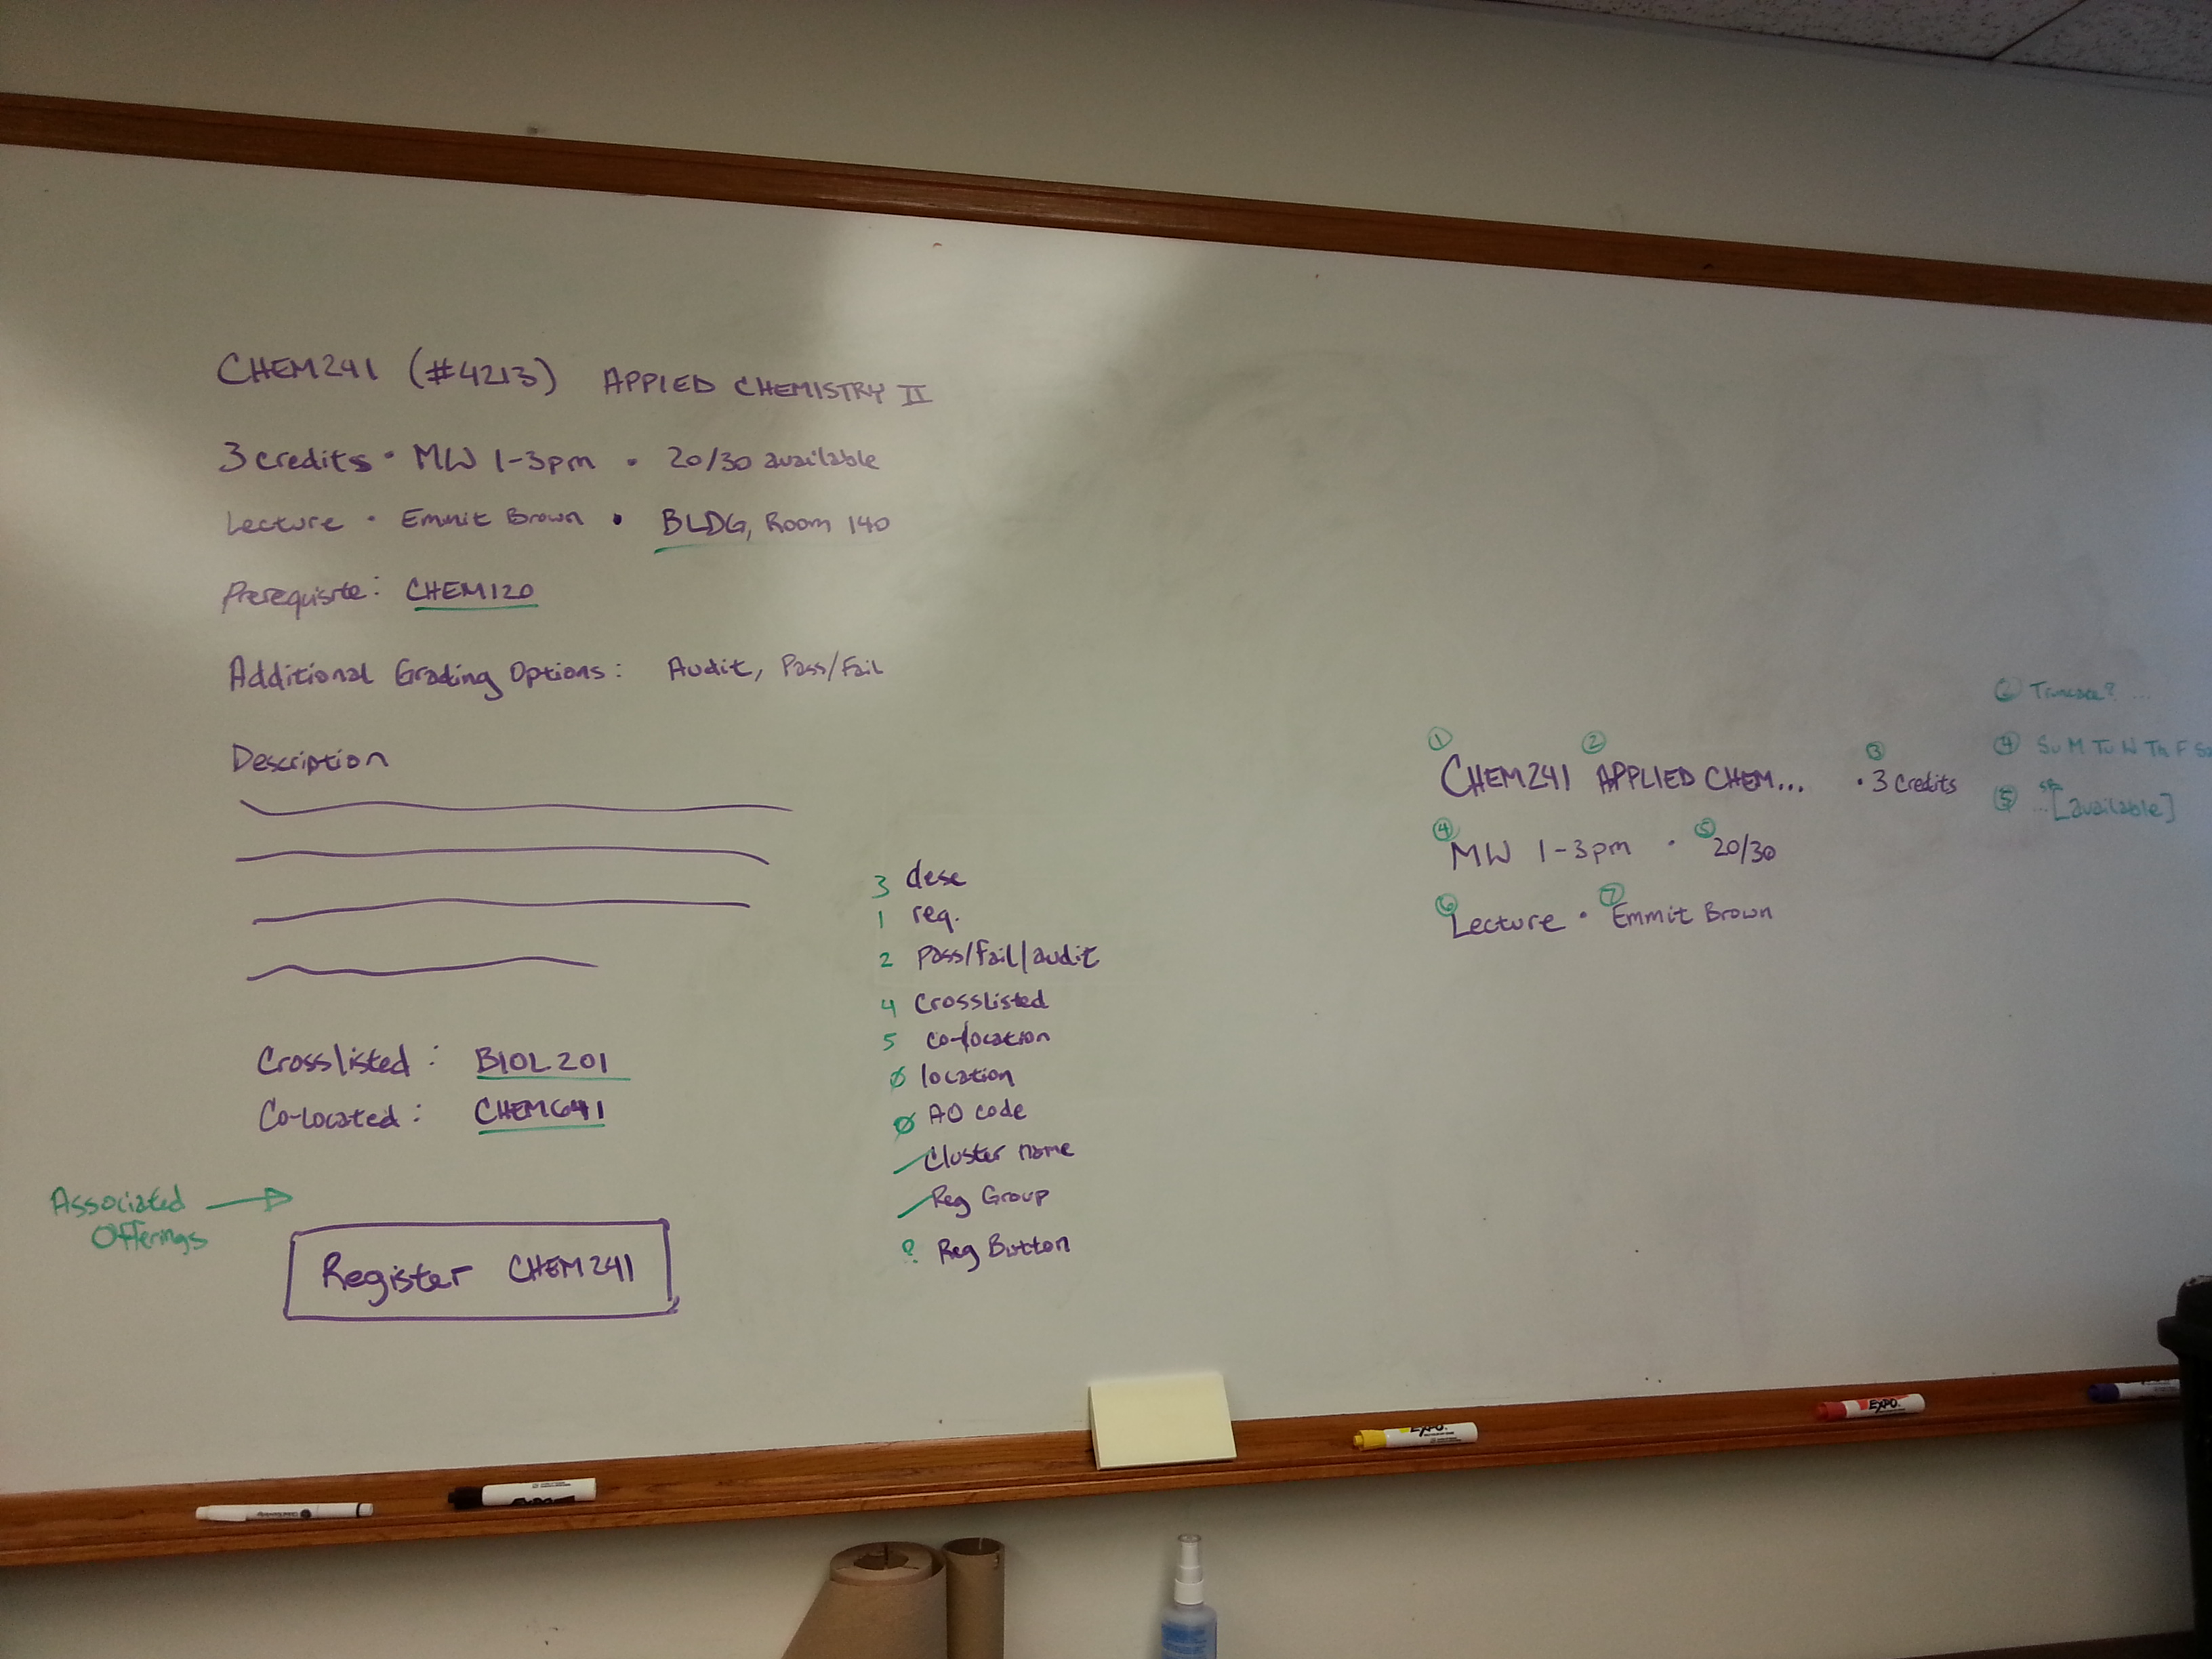 CHEM241 (#4213) APPIED CHEMISTRY II
3 credits • MW 1-3pm • 20/30 available
Lecture • Emmit Brown • BLDG, Room 140
Prerequisite: CHEM120
Additional Grading Options: Audit, Pass/Fail
Description
Crosslisted: BIOL201
Co-located: CHEM641
Associated Offerings
Register CHEM241
3 desc
1 req.
2 pass/fail/audit
4 Crosslisted
5 co-location
Ø location
Ø AO code
Cluster name
Reg Group
? Reg Button
1 2 3
CHEM241 APPLIED CHEM... • 3 credits
4 5
MW 1-3pm • 20/30
6 7
Lecture • Emmit Brown
Truncate? ...
4 Su M Tu W Th F Sa
5 ... [available]
EXPO
EXPO
EXPO